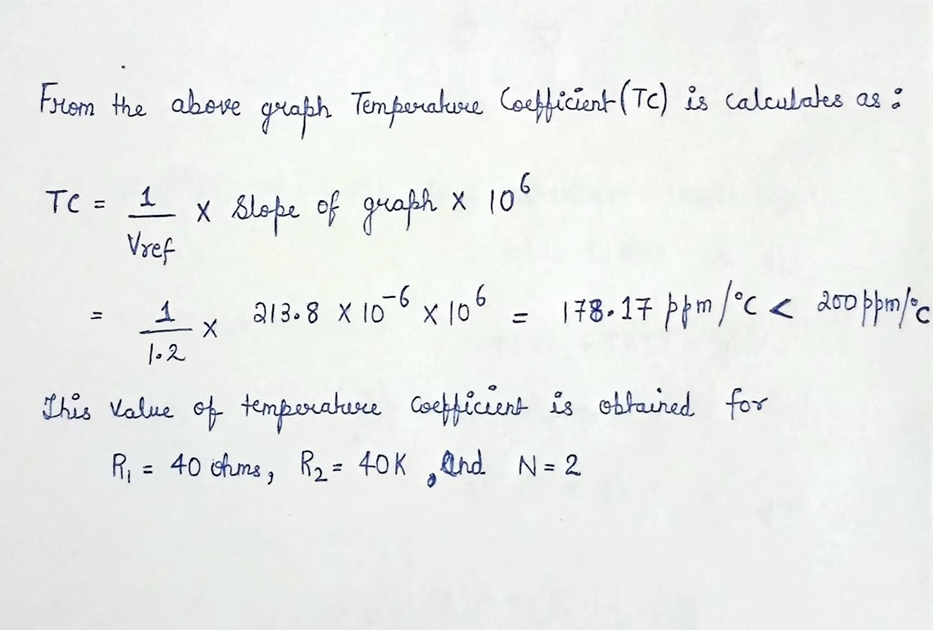 From the above graph Temperature Coefficient (TC) is calculates as :
TC = 1/Vref × Slope of graph × 10^6
= 1/1.2 × 213.8 × 10^-6 × 10^6 = 178.17 ppm/°C < 200 ppm/°C
This value of temperature coefficient is obtained for
R1 = 40 ohms, R2 = 40K, and N = 2